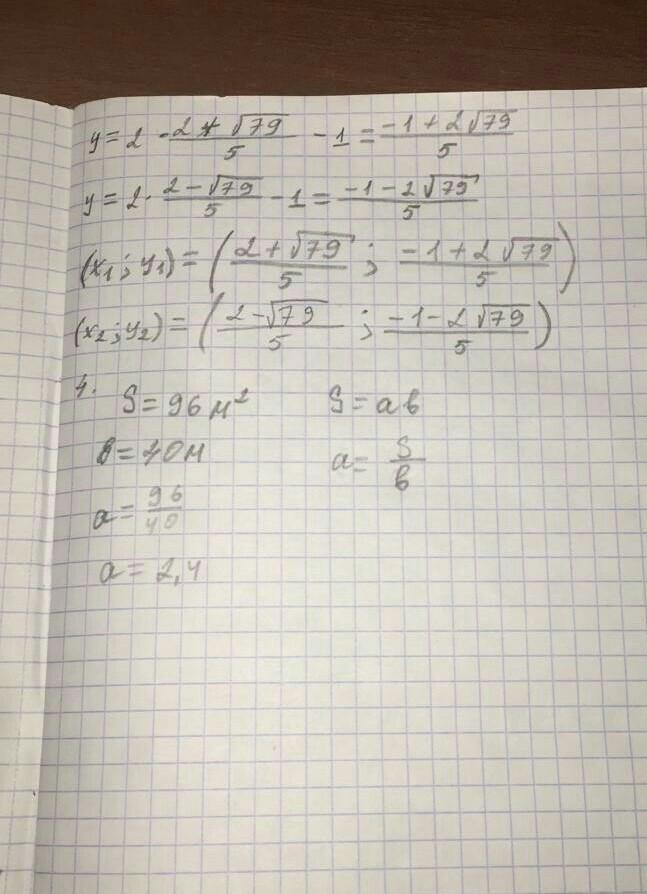 y = 2 · (2 + √79)/5 - 1 = (-1 + 2√79)/5
y = 2 · (2 - √79)/5 - 1 = (-1 - 2√79)/5
(x₁; y₁) = ((2 + √79)/5 ; (-1 + 2√79)/5)
(x₂; y₂) = ((2 - √79)/5 ; (-1 - 2√79)/5)
4.
S = 96 м² S = ab
b = 40м a = S/b
a = 96/40
a = 2,4